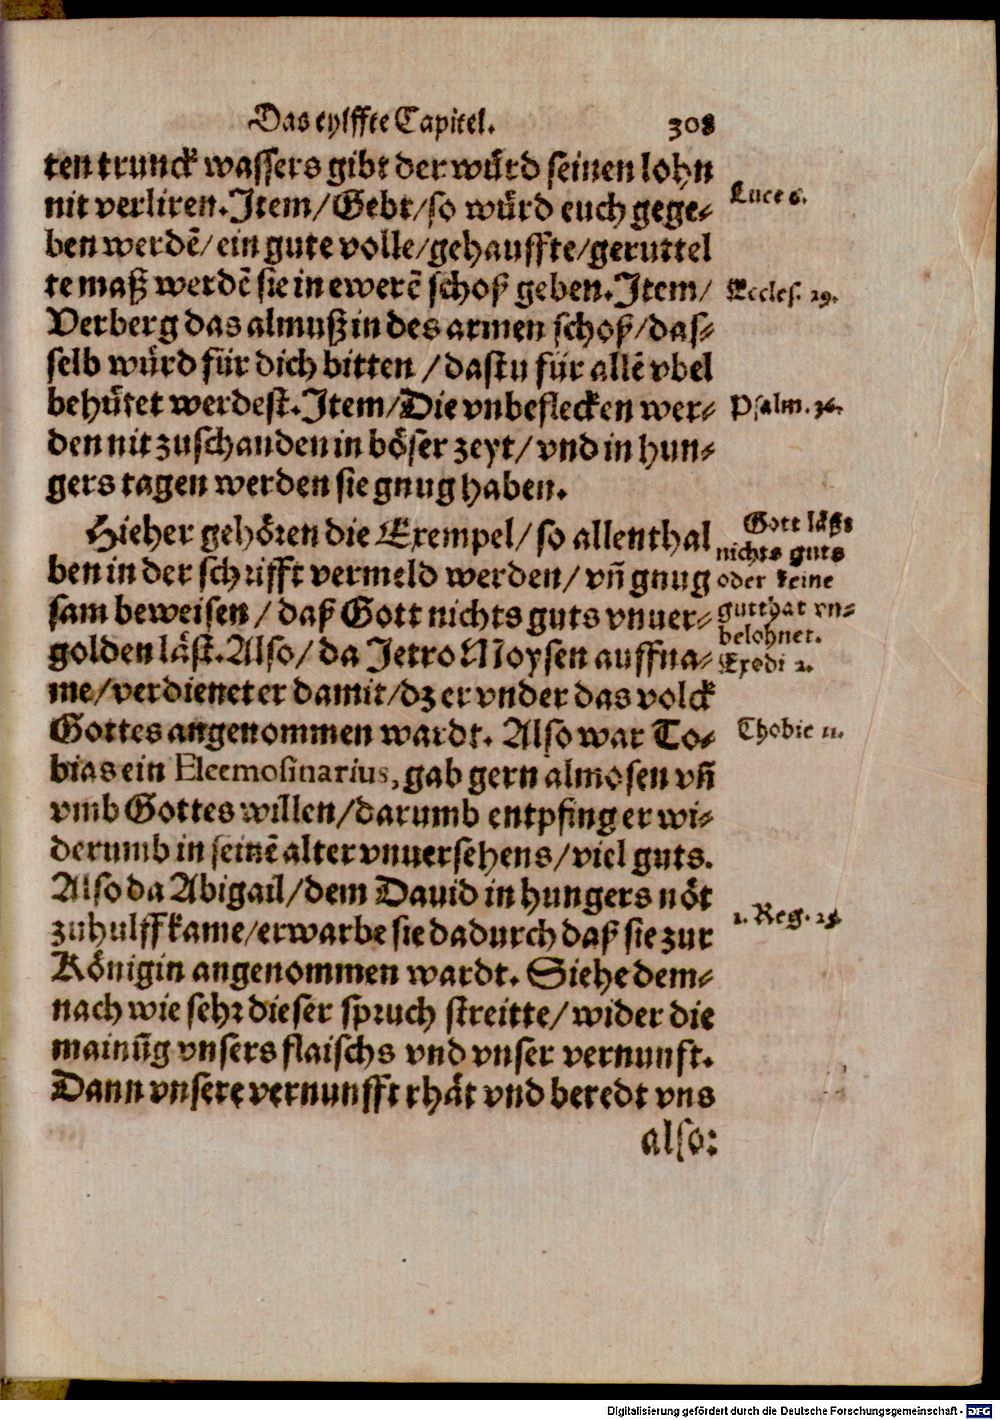 Das eylffte Capitel. 308
ten trunck wassers gibt der wu̍rd seinen lohn
nit verliren. Item/ Gebt/ so wu̍rd euch gege-
ben werdē/ ein gute volle/ gehauffte/ geruttel
te maß werdē sie in ewerē schoß geben. Item/
Verberg das almuß in des armen schoß/ das-
selb wu̍rd für dich bitten / dastu für allē vbel
behu̍tet werdest. Item/ Die vnbeflecken wer-
den nit zuschanden in böser zeyt/ vnd in hun-
gers tagen werden sie gnug haben.
Luce 6.
Eccles. 29.
Psalm. 36.
Hieher gehören die Exempel/ so allenthal
ben in der schrifft vermeld werden/ vñ gnug
sam beweisen / daß Gott nichts guts vnuer-
golden läst. Also/ da Jetro Moysen auffna-
me/ verdienet er damit/ dz er vnder das volck
Gottes angenommen wardt. Also war To-
bias ein Eleemosinarius, gab gern almosen vñ
vmb Gottes willen/ darumb entpfing er wi-
derumb in seinē alter vnuersehens/ viel guts.
Also da Abigail/ dem Dauid in hungers nöt
zuhulff kame/ erwarbe sie dadurch daß sie zur
Königin angenommen wardt. Siehe dem-
nach wie sehr dieser spruch streitte/ wider die
mainūg vnsers flaischs vnd vnser vernunft.
Dann vnsere vernunfft rhät vnd beredt vns
also:
Gott läßt
nichts guts
oder keine
gutthat vn-
belohnet.
Exodi 2.
Thobie 11.
1. Reg. 25.
Digitalisierung gefördert durch die Deutsche Forschungsgemeinschaft - DFG